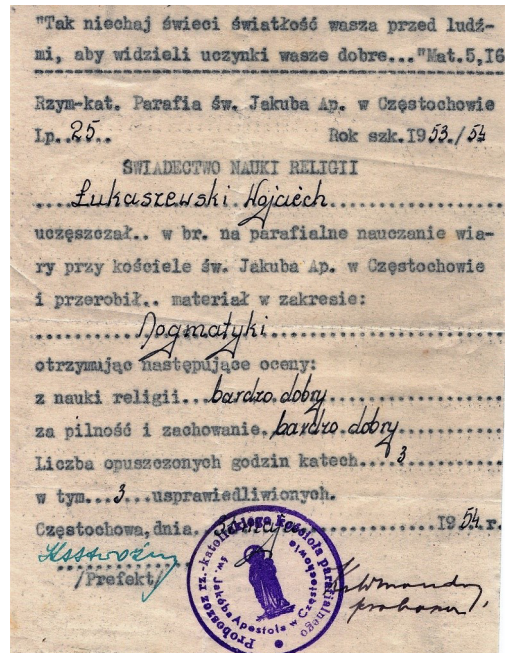 "Tak niechaj świeci światłość wasza przed ludź-
mi, aby widzieli uczynki wasze dobre..."Mat.5,16
Rzym-kat. Parafia św. Jakuba Ap. w Częstochowie
Lp..25.. Rok szk.1953./54
ŚWIADECTWO NAUKI RELIGII
....Łukaszewski Wojciech....
uczęszczał.. w br. na parafialne nauczanie wia-
ry przy kościele św. Jakuba Ap. w Częstochowie
i przerobił.. materiał w zakresie:
....Dogmatyki....
otrzymując następujące oceny:
z nauki religii...bardzo dobry....
za pilność i zachowanie.bardzo dobry....
Liczba opuszczonych godzin katech....3....
w tym...3...usprawiedliwionych.
Częstochowa,dnia....maja....1954 r.
/Prefekt/
proboszcz
Proboszcz rz.-katolickiego Kościoła parafialnego
św. Jakóba Apostoła w Częstochowie